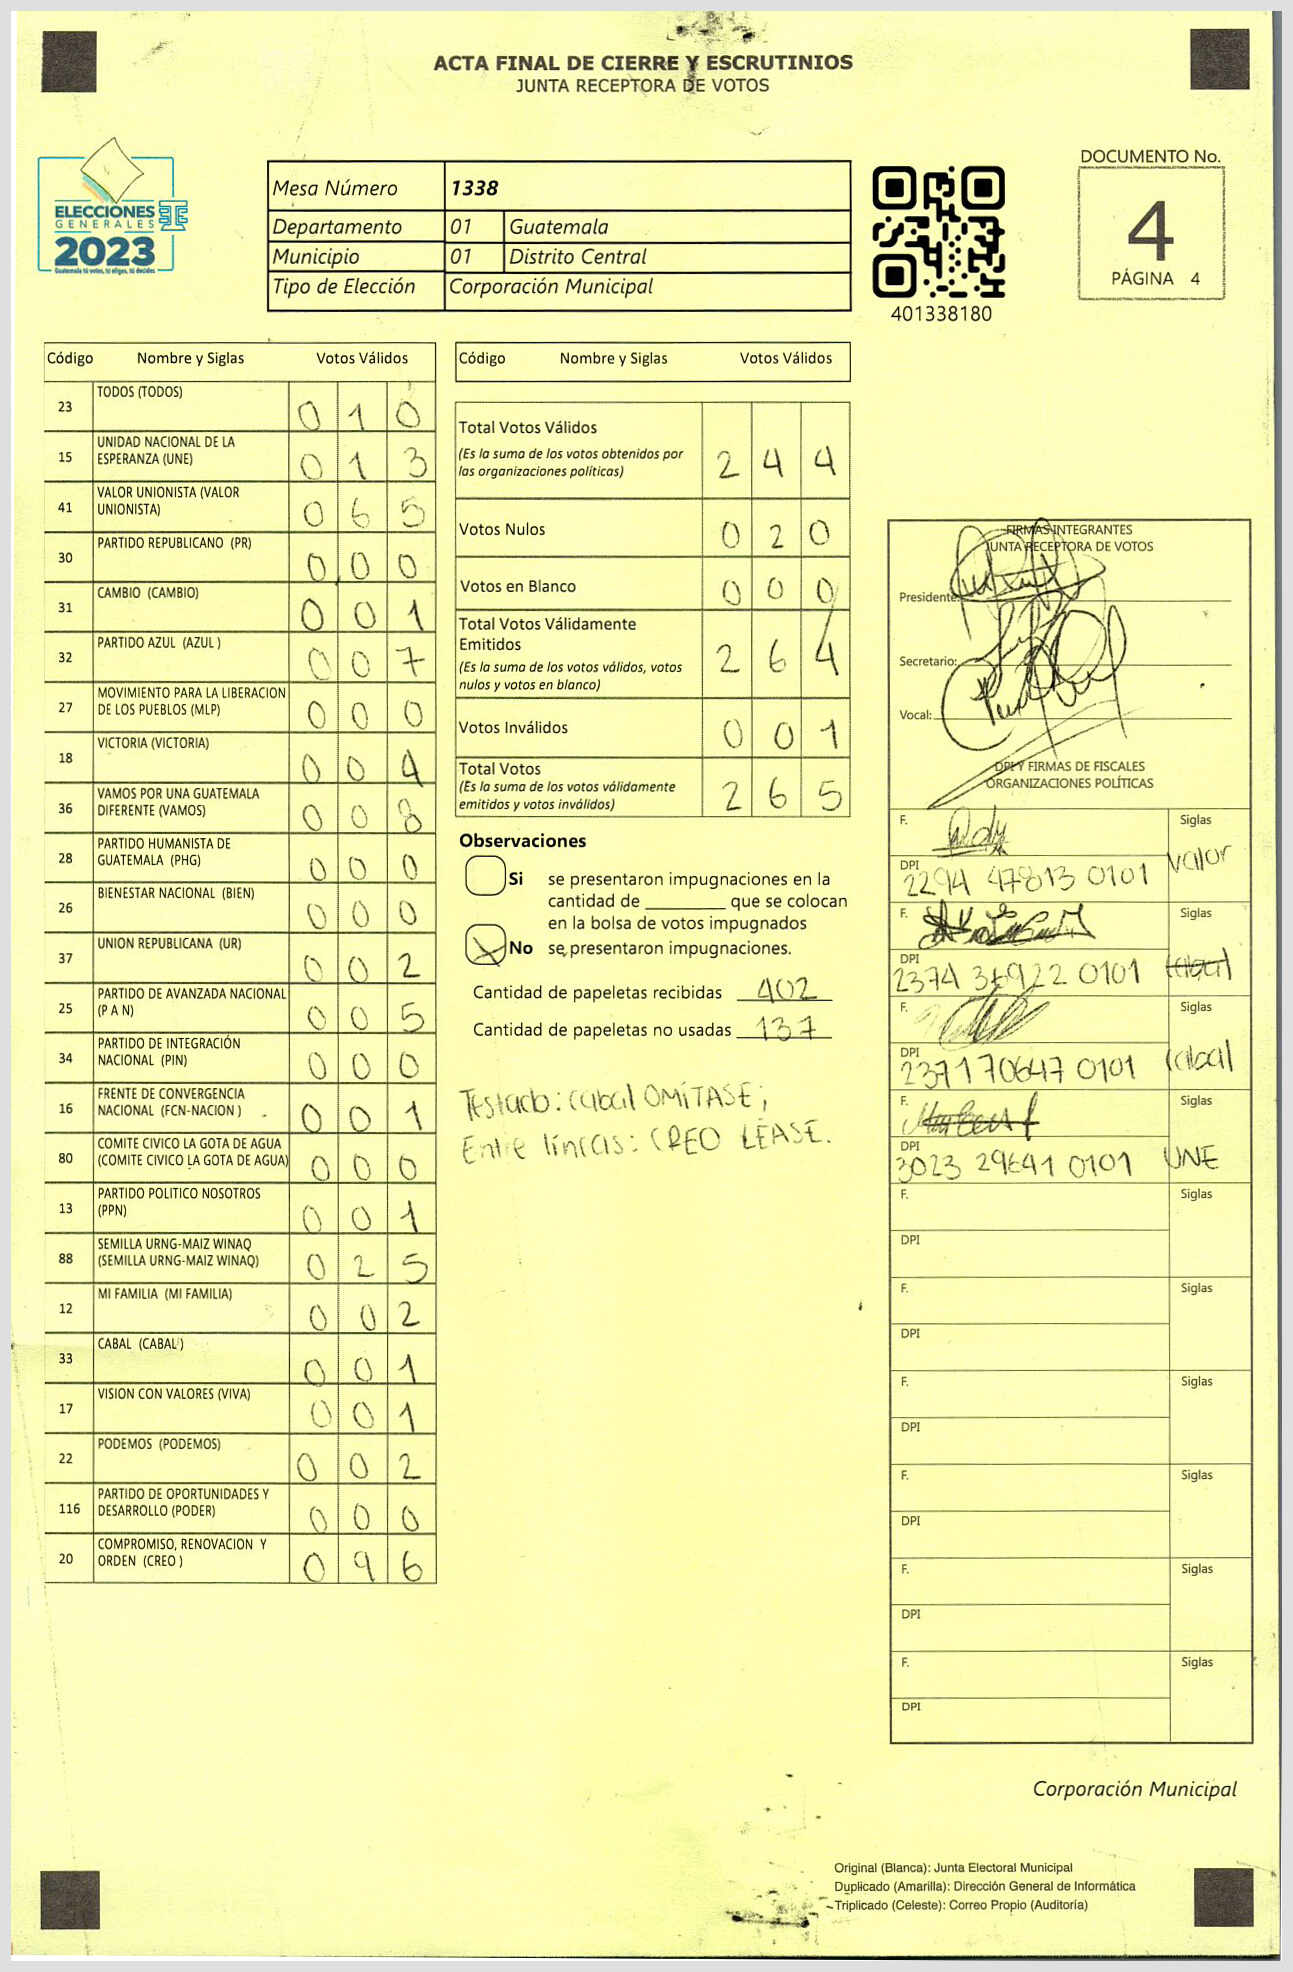 ACTA FINAL DE CIERRE Y ESCRUTINIOS
JUNTA RECEPTORA DE VOTOS
ELECCIONES
GENERALES
2023
Guatemala tú votes, tú eliges, tú decides
Mesa Número 1338
Departamento 01 Guatemala
Municipio 01 Distrito Central
Tipo de Elección Corporación Municipal
401338180
DOCUMENTO No.
4
PÁGINA 4
Código Nombre y Siglas Votos Válidos
23 TODOS (TODOS) 0 1 0
15 UNIDAD NACIONAL DE LA ESPERANZA (UNE) 0 1 3
41 VALOR UNIONISTA (VALOR UNIONISTA) 0 6 5
30 PARTIDO REPUBLICANO (PR) 0 0 0
31 CAMBIO (CAMBIO) 0 0 1
32 PARTIDO AZUL (AZUL ) 0 0 7
27 MOVIMIENTO PARA LA LIBERACION DE LOS PUEBLOS (MLP) 0 0 0
18 VICTORIA (VICTORIA) 0 0 4
36 VAMOS POR UNA GUATEMALA DIFERENTE (VAMOS) 0 0 8
28 PARTIDO HUMANISTA DE GUATEMALA (PHG) 0 0 0
26 BIENESTAR NACIONAL (BIEN) 0 0 0
37 UNION REPUBLICANA (UR) 0 0 2
25 PARTIDO DE AVANZADA NACIONAL (P A N) 0 0 5
34 PARTIDO DE INTEGRACIÓN NACIONAL (PIN) 0 0 0
16 FRENTE DE CONVERGENCIA NACIONAL (FCN-NACION ) 0 0 1
80 COMITE CIVICO LA GOTA DE AGUA (COMITE CIVICO LA GOTA DE AGUA) 0 0 0
13 PARTIDO POLITICO NOSOTROS (PPN) 0 0 1
88 SEMILLA URNG-MAIZ WINAQ (SEMILLA URNG-MAIZ WINAQ) 0 2 5
12 MI FAMILIA (MI FAMILIA) 0 0 2
33 CABAL (CABAL) 0 0 1
17 VISION CON VALORES (VIVA) 0 0 1
22 PODEMOS (PODEMOS) 0 0 2
116 PARTIDO DE OPORTUNIDADES Y DESARROLLO (PODER) 0 0 0
20 COMPROMISO, RENOVACION Y ORDEN (CREO ) 0 9 6
Código Nombre y Siglas Votos Válidos
Total Votos Válidos 2 4 4
(Es la suma de los votos obtenidos por
las organizaciones políticas)
Votos Nulos 0 2 0
Votos en Blanco 0 0 0
Total Votos Válidamente
Emitidos 2 6 4
(Es la suma de los votos válidos, votos
nulos y votos en blanco)
Votos Inválidos 0 0 1
Total Votos 2 6 5
(Es la suma de los votos válidamente
emitidos y votos inválidos)
Observaciones
Si se presentaron impugnaciones en la
cantidad de ________ que se colocan
en la bolsa de votos impugnados
No se presentaron impugnaciones.
Cantidad de papeletas recibidas 402
Cantidad de papeletas no usadas 137
Testado: Cabal OMÍTASE;
Entre líneas: CREO LÉASE.
FIRMAS INTEGRANTES
JUNTA RECEPTORA DE VOTOS
Presidente:
Secretario:
Vocal:
DPI Y FIRMAS DE FISCALES
ORGANIZACIONES POLÍTICAS
F. Siglas
DPI 2294 47813 0101 Valor
F. Siglas
DPI 0101 Cabal
F. Siglas
DPI 2371 70647 0101 Cabal
F. Siglas
DPI 3023 29641 0101 UNE
F. Siglas
DPI
F. Siglas
DPI
F. Siglas
DPI
F. Siglas
DPI
F. Siglas
DPI
F. Siglas
DPI
Corporación Municipal
Original (Blanca): Junta Electoral Municipal
Duplicado (Amarilla): Dirección General de Informática
Triplicado (Celeste): Correo Propio (Auditoría)